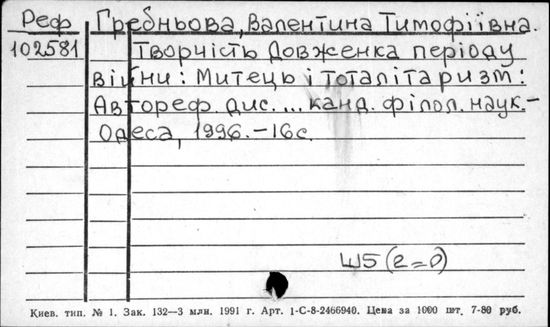 Реф Гребньова, Валентина Тимофіївна.
102581 Творчість Довженка періоду
війни: Митець і тоталітаризм:
Автореф. дис. ... канд. філол. наук.-
Одеса, 1996.-16с.
Ш5(2=Р)
Киев. тип. № 1. Зак. 132—3 млн. 1991 г. Арт. 1-С-8-2466940. Цена за 1000 шт. 7-80 руб.